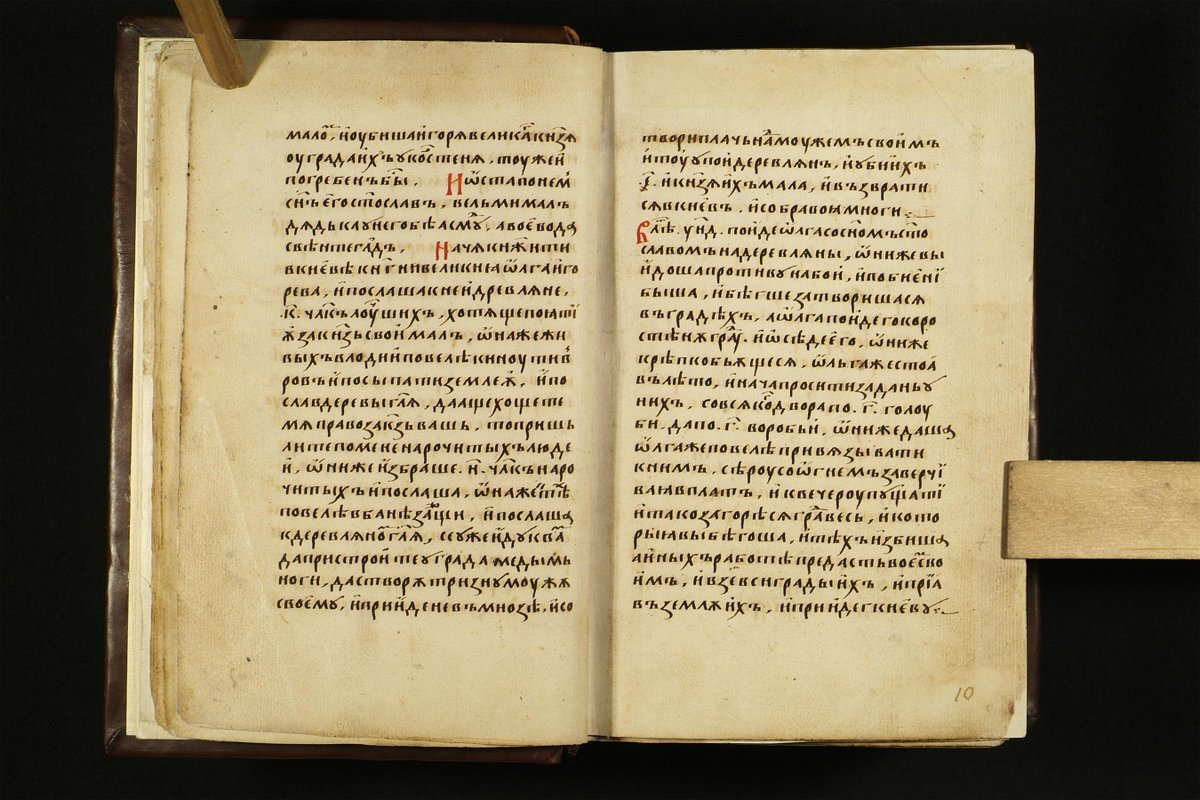 мало҇, и҆оубиша и҆горѧ великаⷢ҇ кнѧзѧ
оу града и҆хъ ѹ҆ коⷬ҇стенѧ . тоу же и҆
погребенъ бы҇ . И ѡ҆ста по неⷨ
сн҃ъ е҆го ст҃ославъ , вельми малъ
дѧдька ѹ҆ него бѣ асмꙋⷣ , а вое҆вода
свѣнтегелⷣъ . Начѧ кнѧжити
в кие҆вѣ кнѧг҃ни великиꙗ ѡ҆лга и҆го
рева , и҆ послаша к неи҆ древлѧне ,
.к҃. чл҃къ лоуⷱ҇ших , хотѧще поѧти
ѫ҆ за кнѧзь свои҆ малъ , ѡ҆на же жи
выхъ в лодии҆ повелѣ киноути в
ровъ и҆ посыпати землеѫ , и҆ по
сла в деревы гл҃ѧ , да аще хощете
мѧ право за кнѧзь вашь , то пришь
лите по мене нарочитыхъ люде
и҆ , ѡ҆ни же и҆збраше .н҃. чл҃къ наро
читыхъ и҆ послаша , ѡ҆на же и҆ тѣⷯ
повелѣ в бани зажⷪ҇щи , и҆ посла
к деревлѧноⷨ гл҃ѧ , се ѹ҆же и҆дꙋ к ваⷨ
да пристрои҆те ѹ҆ града меды мь
ноги , да створѫ тризнꙋ моужѫ
своемꙋ , и҆ прии҆де не въ мнозѣ , и҆ со
твори плачь наⷣ моужемъ свои҆мъ
и҆ тоу ѹ҆пои҆ деревлѧнъ , и҆ ѹ҆би и҆хъ
.҂е҃. и҆ кнѧзѧ и҆хъ мала , и҆ възврати
сѧ в кие҆въ . и҆ собра воѧ многи .
В лѣⷮ . ѹ҃нд . пои҆де ѡ҆лга со сн҃омъ ст҃о
славомъ на деревлѧны , ѡ҆ни же вы
и҆доша противꙋ на бои҆ , и҆ побие҆ни
быша , и҆ бѣгше затворишасѧ
въ градѣхъ , а ѡ҆лга пои҆де г коро
стѣнѫ граⷣꙋ . и҆ ѡ҆сѣде е҆го , ѡ҆ни же
крѣпко бьѫщесѧ , ѡ҆льга же стоа
въ лѣто , и҆ нача просити задань ѹ҆
нихъ , со всѧкоⷢ двора по .г҃. голоу
би , да по .г҃. воробьи , ѡ҆ни же даша
ѡ҆лга же повелѣ привѧзывати
к нимъ , сѣроу со ѡ҆гнемъ заверчи
ваюⷱ в платъ , и҆ к вечероу пꙋщати
и҆ тако загорѣсѧ граⷣ весь , и҆ кото
рыꙗ выбѣгоша , и҆ тѣхъ и҆збиша
а и҆ныхъ работѣ предасть вое҆ⷨ сво
и҆мъ , и҆ взе всѧ грады и҆хъ , и҆ приѧ
въ землѫ и҆хъ , и҆ прии҆де г кие҆вꙋ .
10